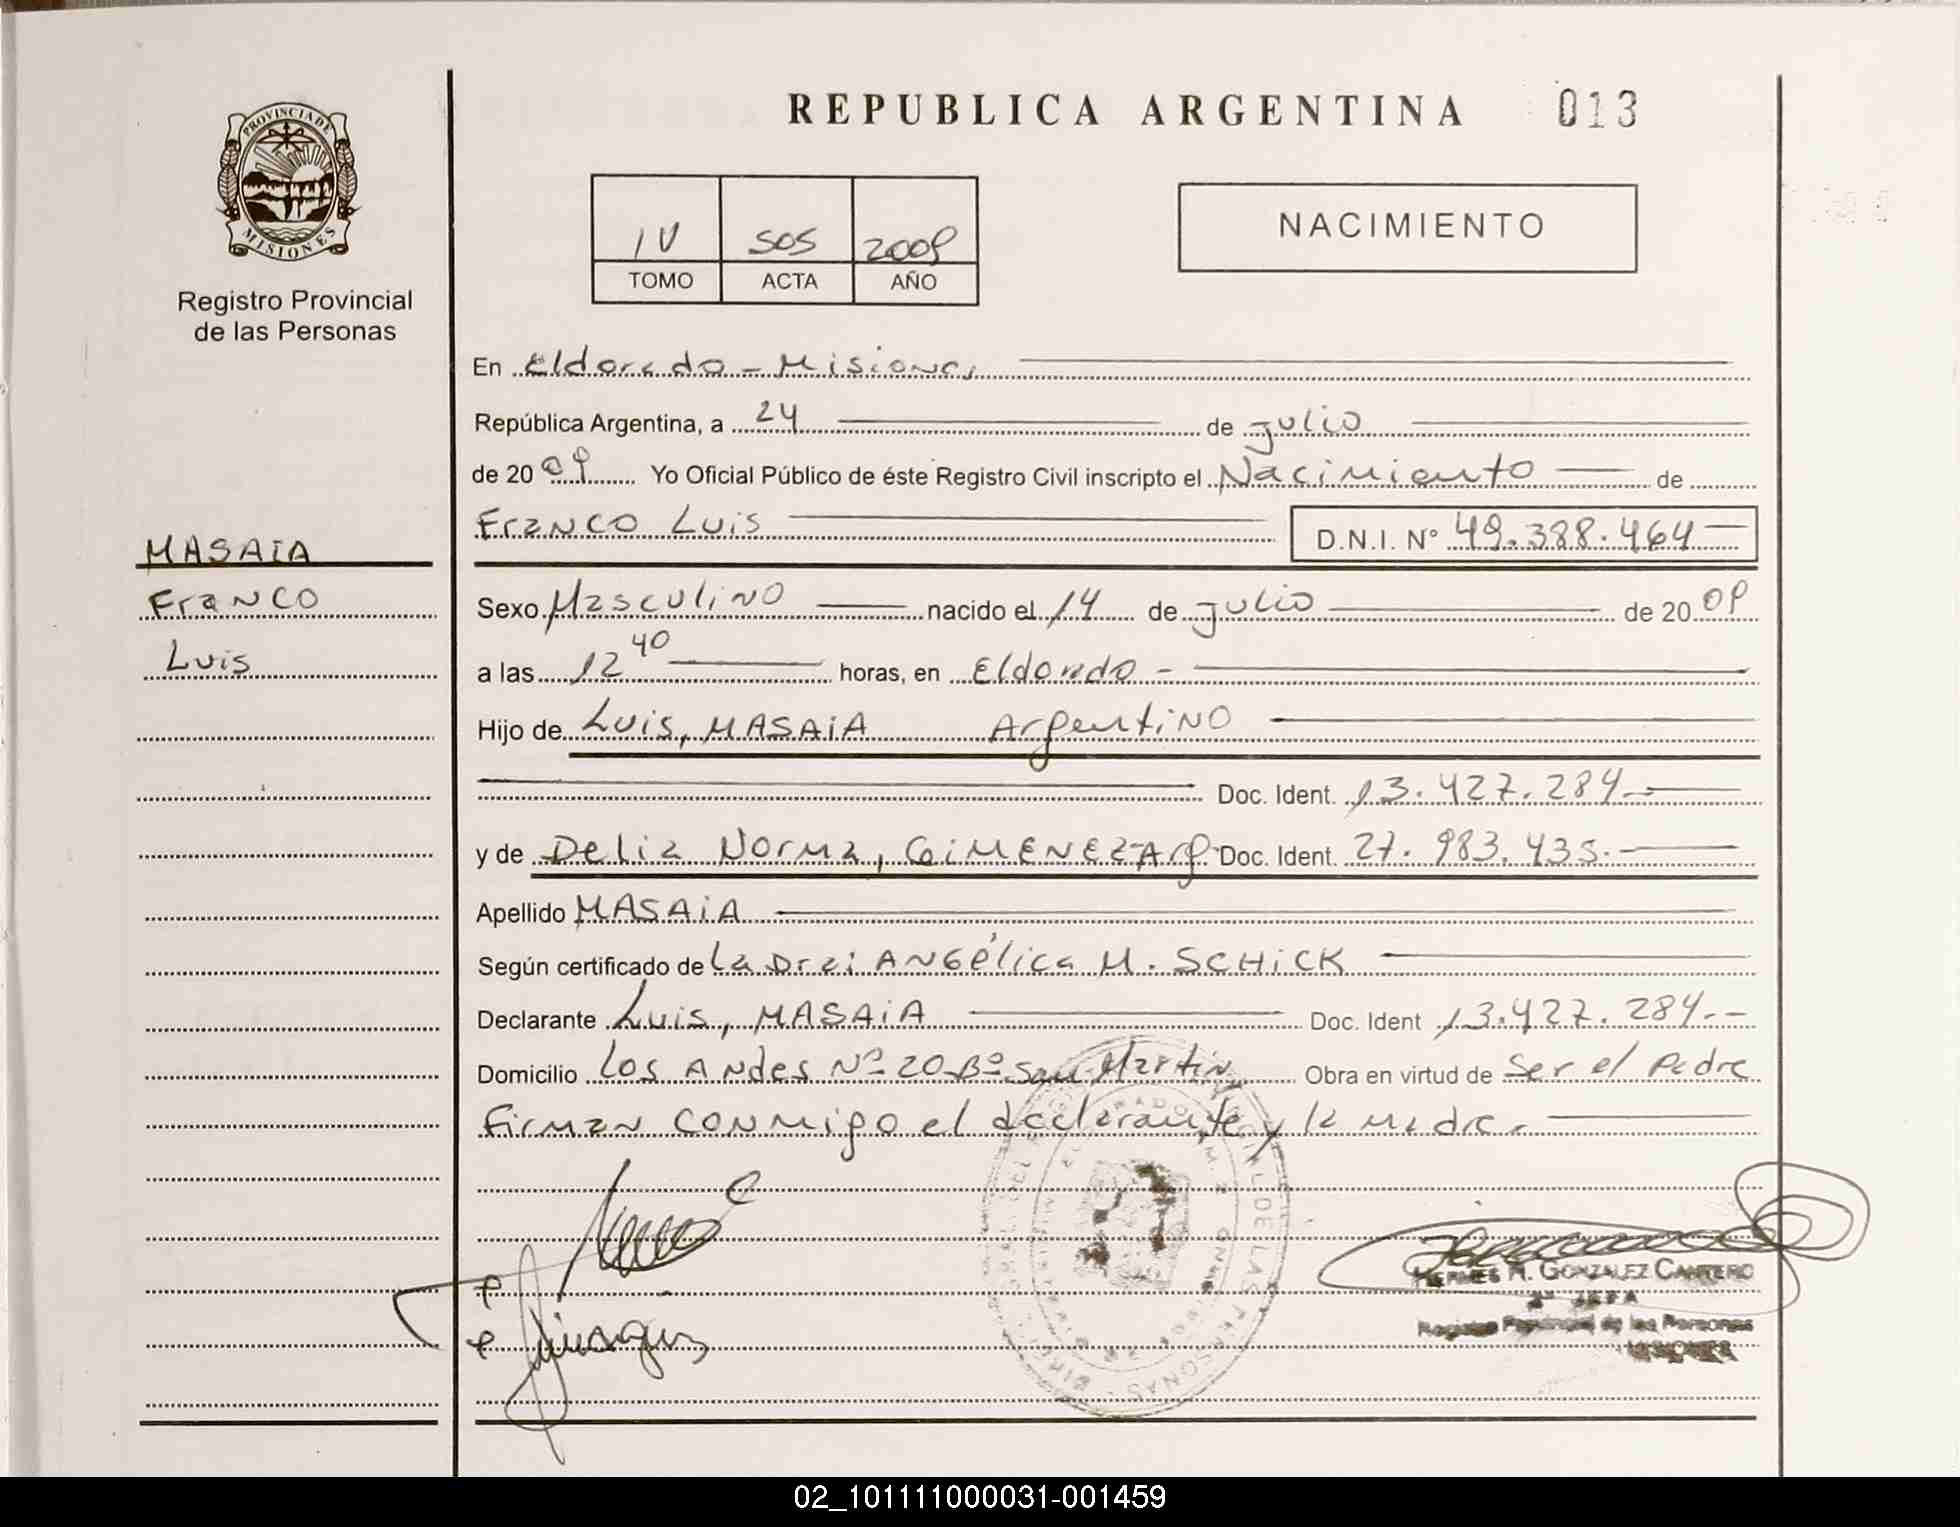 REPUBLICA ARGENTINA 013
PROVINCIA DE
MISIONES
Registro Provincial
de las Personas
IV 505 2009
TOMO ACTA AÑO
NACIMIENTO
En Eldorado - Misiones
República Argentina, a 24 de julio
de 20 09 Yo Oficial Público de éste Registro Civil inscripto el Nacimiento de
Franco Luis D.N.I. N° 49.388.464
MASAIA
Franco
Luis
Sexo Masculino nacido el 14 de julio de 20 09
a las 12 40 horas, en Eldorado -
Hijo de Luis, MASAiA Argentino
Doc. Ident. 13.427.284.-
y de Delia Norma, GiMENEZ Arg. Doc. Ident. 27.983.435.
Apellido MASAiA
Según certificado de La Dra: ANGélica M. SCHiCK
Declarante Luis, MASAiA Doc. Ident 13.427.284.-
Domicilio Los Andes Nº 20 Bº San Martin Obra en virtud de Ser el Padre
Firman conmigo el declarante y la madre.
HERMES R. GONZALEZ CANTERO
Registro Provincial de las Personas
MISIONES
02_101111000031-001459